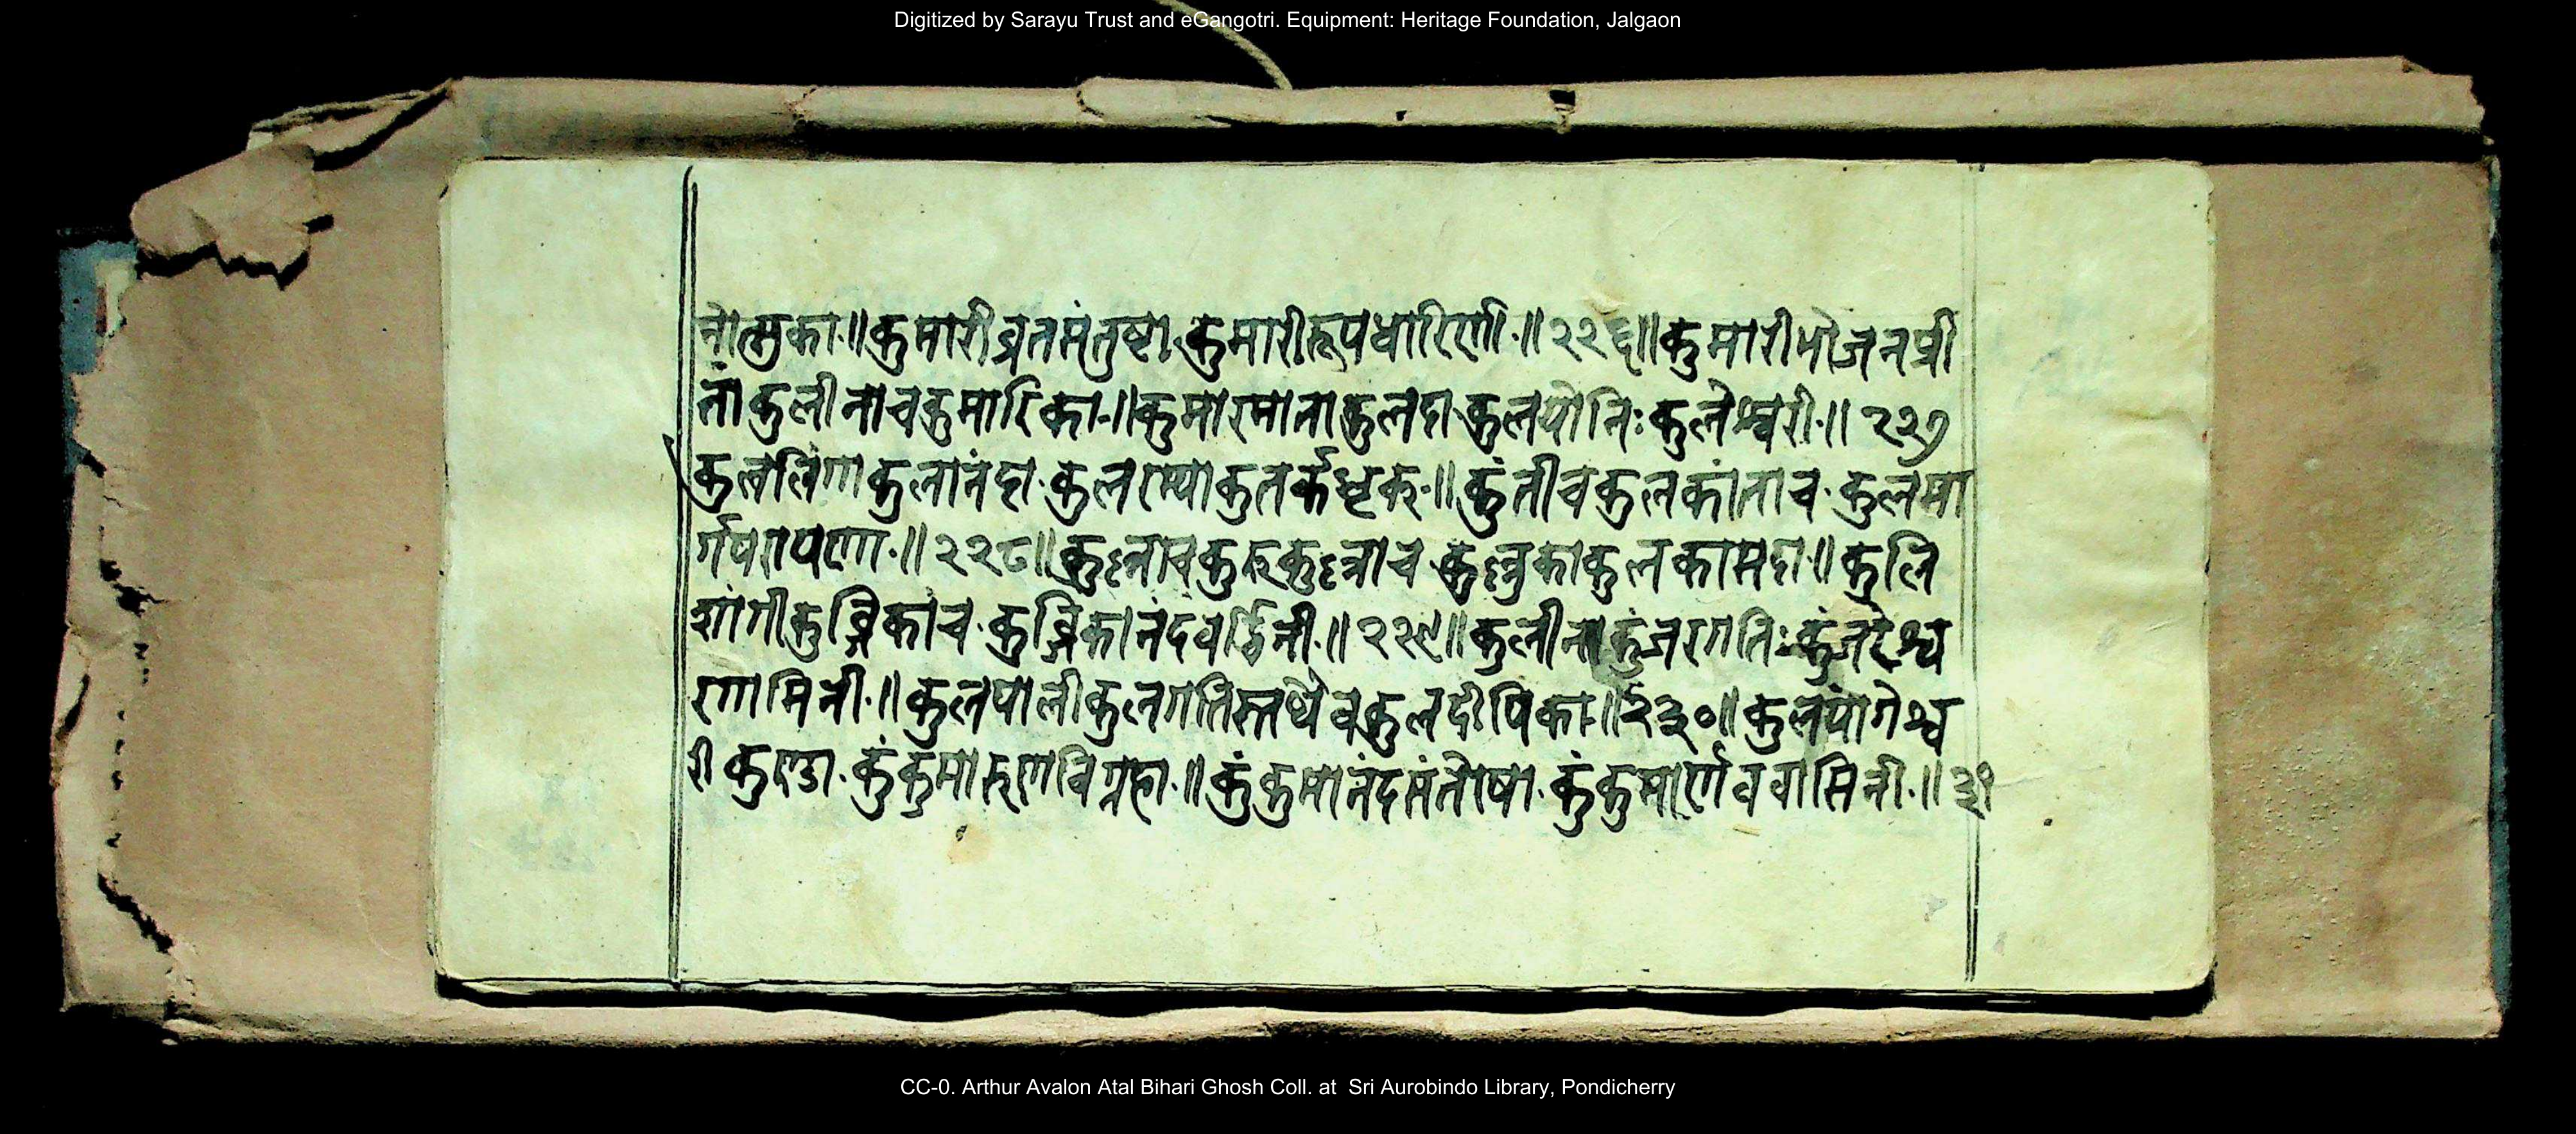 Digitized by Sarayu Trust and eGangotri. Equipment: Heritage Foundation, Jalgaon
नोत्सुका॥कुमारीव्रतसंतुष्टा कुमारीरूपधारिणी॥२२६॥कुमारीभोजनप्री
तां कुलीनाचकुमारिका॥कुमारमाताकुलदा कुलयोनिः कुलेश्वरी॥२२७
कुललिंगाकुलानंदा कुलरम्याकुतर्कधृक्॥कुंतीचकुलकांताच कुलमा
र्गपरायणा॥२२८॥ कुलकामदा॥कुलि
शांगीकुब्जिकाच कुब्जिकानंदवर्द्धिनी॥२२९॥कुलीनाकुंजरगतिः कुंजरेश्व
रगामिनी॥कुलपालीकुलगतिस्तथैवकुलदीपिका॥२३०॥कुलयोगेश्व
री कुण्डा कुंकुमारुणविग्रहा॥कुंकुमानंदसंतोषा कुंकुमार्णववासिनी॥३१
CC-0. Arthur Avalon Atal Bihari Ghosh Coll. at Sri Aurobindo Library, Pondicherry